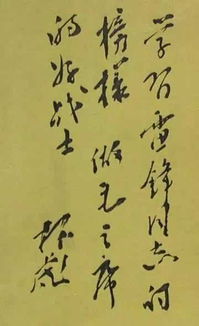 学习雷锋同志的
榜样 做毛主席
的好战士
林彪